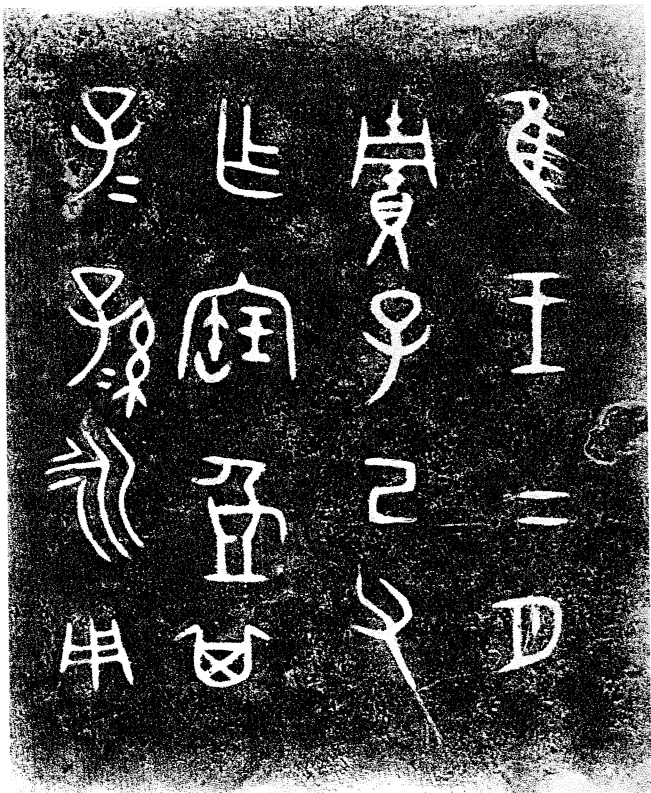 隹王二月
賈子己父
乍寶匜其
子=孫=永用